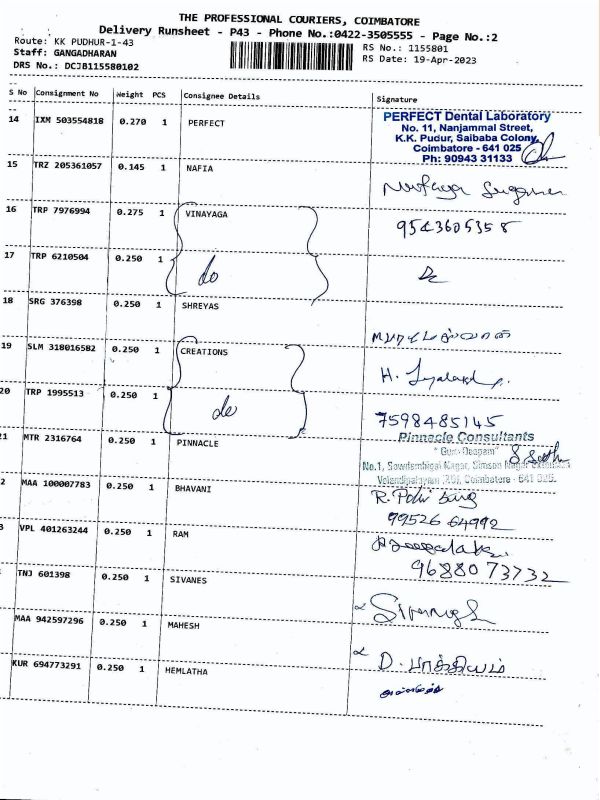 THE PROFESSIONAL COURIERS, COIMBATORE
Delivery Runsheet - P43 - Phone No.:0422-3505555 - Page No.:2
Route: KK PUDHUR-1-43
RS No.: 1155801
Staff: GANGADHARAN
RS Date: 19-Apr-2023
DRS No.: DCJB115580102
S No Consignment No Weight PCS Consignee Details Signature
14 IXM 503554818 0.270 1 PERFECT
PERFECT Dental Laboratory
No. 11, Nanjammal Street,
K.K. Pudur, Saibaba Colony,
Coimbatore - 641 025
Ph: 90943 31133
15 TRZ 205361057 0.145 1 NAFIA
16 TRP 7976994 0.275 1 VINAYAGA
9543605358
17 TRP 6210504 0.250 1 do
18 SRG 376398 0.250 1 SHREYAS
19 SLM 318016582 0.250 1 CREATIONS
H.
20 TRP 1995513 0.250 1 do
7598485145
21 MTR 2316764 0.250 1 PINNACLE
Pinnacle Consultants
No.1, Sowdambigai Nagar, Simson Nagar
Coimbatore - 641 025.
2 MAA 100007783 0.250 1 BHAVANI
R.
99526 64992
3 VPL 401263244 0.250 1 RAM
9688073732
TNJ 601398 0.250 1 SIVANES
MAA 942597296 0.250 1 MAHESH
D. பாக்கியம்
KUR 694773291 0.250 1 HEMLATHA